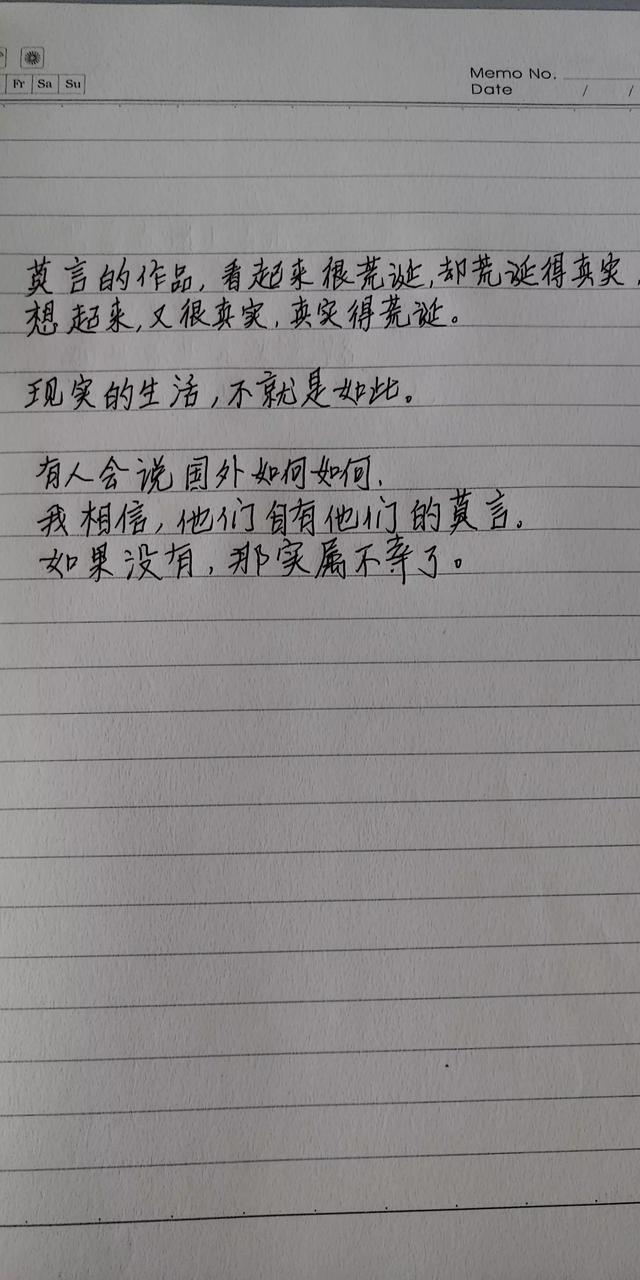 Fr Sa Su
Memo No.
Date / /
莫言的作品,看起来很荒诞,却荒诞得真实,
想起来,又很真实,真实得荒诞。
现实的生活,不就是如此。
有人会说国外如何如何,
我相信,他们自有他们的莫言。
如果没有,那实属不幸了。